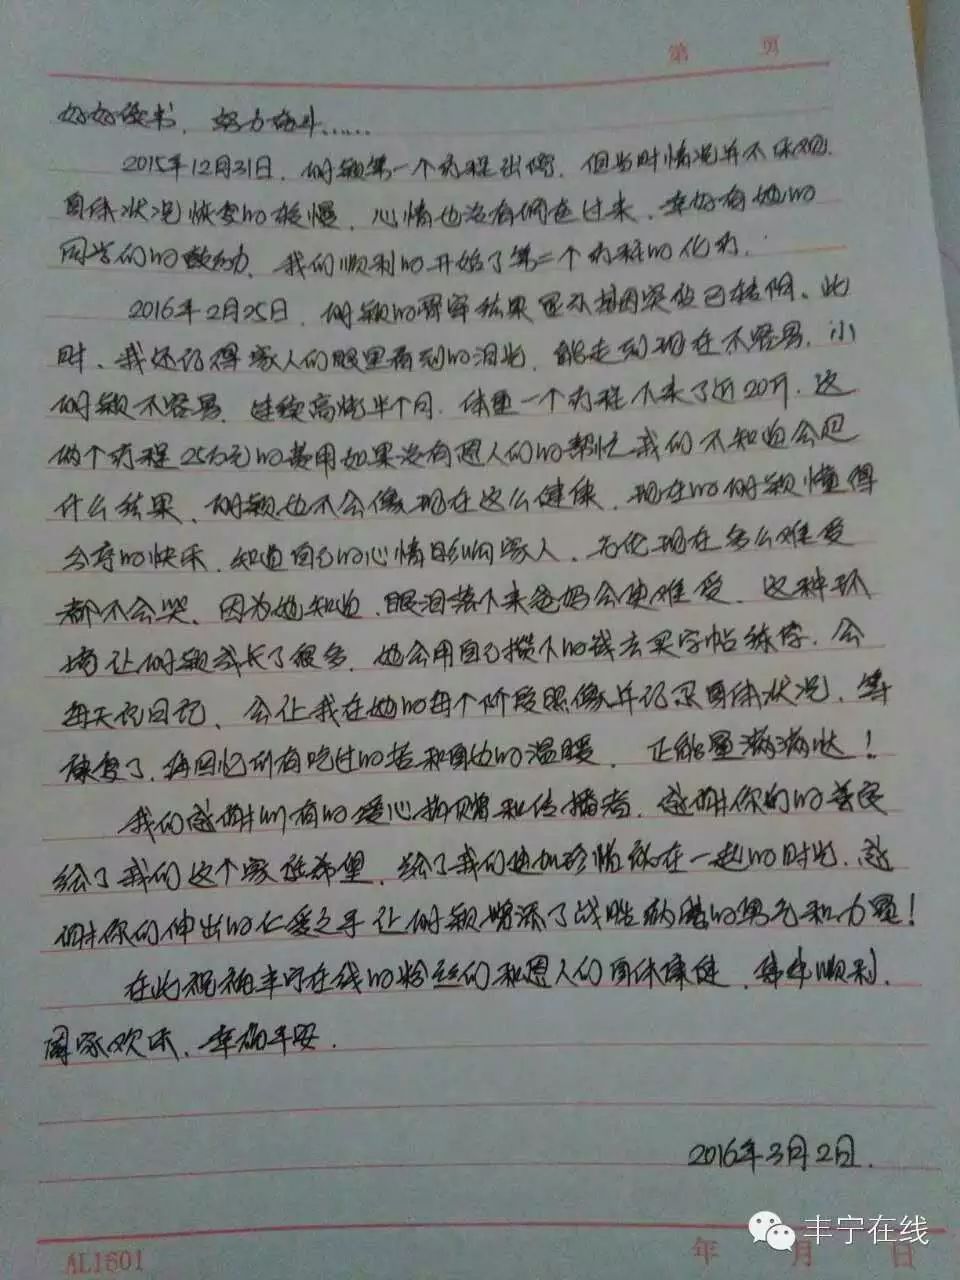 第 页
好好读书，努力奋斗……
2015年12月31日，明颖第一个疗程出院，但当时情况并不乐观，
身体状况恢复的较慢，心情也没有调整过来，幸好有她的
同学们的鼓励，我们顺利的开始了第二个疗程的化疗。
2016年2月25日，明颖的骨穿结果显示基因突变已转阴。此
时，我还记得家人们眼里看到的泪光，能走到现在不容易，小
明颖不容易，连续高烧半个月，体重一个疗程下来了近20斤，这
两个疗程25万元的费用如果没有恩人们的帮忙我们不知道会是
什么结果，明颖也不会像现在这么健康，现在的明颖懂得
分享的快乐，知道自己的心情影响家人，无论现在多么难受
都不会哭，因为她知道，眼泪落下来爸妈会更难受，这种环
境让明颖成长了很多，她会用自己攒下的钱去买字帖练字，会
每天记日记，会让我在她的每个阶段照像并记录身体状况，等
康复了，再回忆所有吃过的苦和身边的温暖，正能量满满哒！
我们感谢所有的爱心捐赠和传播者，感谢你们的善良
给了我们这个家庭希望，给了我们更加珍惜能在一起的时光，感
谢你们伸出的仁爱之手让明颖增添了战胜病魔的勇气和力量！
在此祝福丰宁在线的粉丝们和恩人们身体康健，事事顺利，
阖家欢乐，幸福平安。
2016年3月2日.
丰宁在线
AL1601 年 月 日